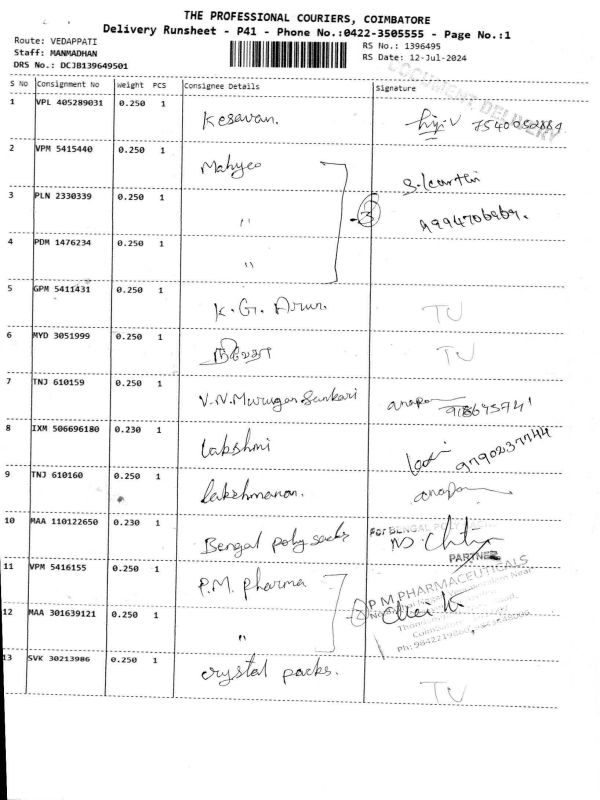 THE PROFESSIONAL COURIERS, COIMBATORE
Delivery Runsheet - P41 - Phone No.:0422-3505555 - Page No.:1
Route: VEDAPPATI
RS No.: 1396495
Staff: MANMADHAN
RS Date: 12-Jul-2024
DRS No.: DCJB139649501
DOCUMENT DELIVERY
S No Consignment No Weight PCS Consignee Details Signature
1 VPL 405289031 0.250 1 Kesavan. 7540052884
2 VPM 5415440 0.250 1 Mahyco S.Karthi
3 PLN 2330339 0.250 1 " 3 9994706969.
4 PDM 1476234 0.250 1 "
5 GPM 5411431 0.250 1 K.G. Arun. TU
6 MYD 3051999 0.250 1 TU
7 TNJ 610159 0.250 1 V.N.Murugan Sankari
8 IXM 506696180 0.230 1 Lakshmi 9790237744
9 TNJ 610160 0.250 1 Lakshmanan.
10 MAA 110122650 0.230 1 Bengal poly sacks For BENGAL POLY
PARTNER
11 VPM 5416155 0.250 1 P.M. Pharma P M PHARMACEUTICALS
12 MAA 301639121 0.250 1 " 2
13 SVK 30213986 0.250 1 crystal packs. TU